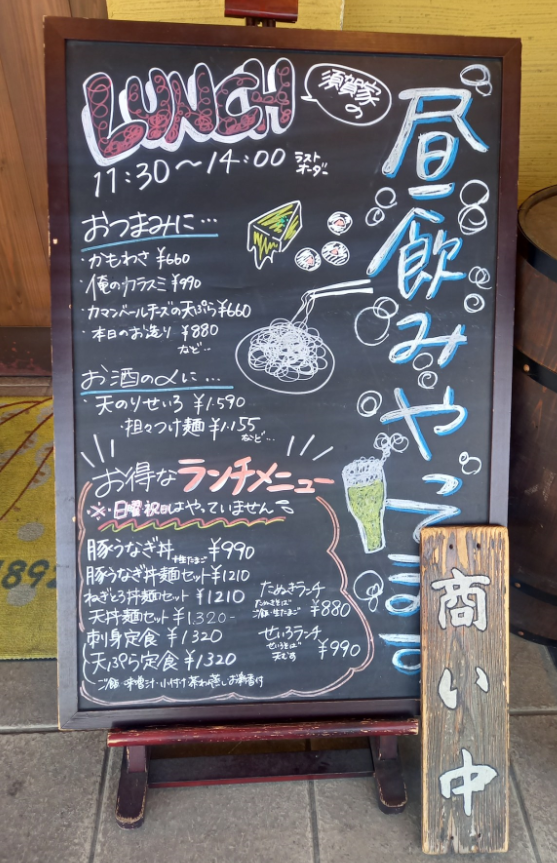 LUNCH
須賀家の
11:30～14:00 ラストオーダー
昼飲みやってます
おつまみに…
・かもわさ ¥660
・俺のカラスミ ¥990
・カマンベールチーズの天ぷら ¥660
・本日のお造り ¥880
など…
お酒の〆に…
・天のりせいろ ¥1.590
・担々つけ麺 ¥1.155
など…
お得なランチメニュー
※・日曜・祝日はやっていません
豚うなぎ丼 ¥990
豚うなぎ丼麺セット ¥1210
ねぎとろ丼麺セット ¥1210
天丼麺セット ¥1.320-
刺身定食 ¥1.320
天ぷら定食 ¥1.320
ご飯・味噌汁・小付け・茶わん蒸し・お新香付
たぬきランチ
たぬきそば
ご飯・生たまご ¥880
せいろランチ
せいろそば
天むす ¥990
商い中
1892